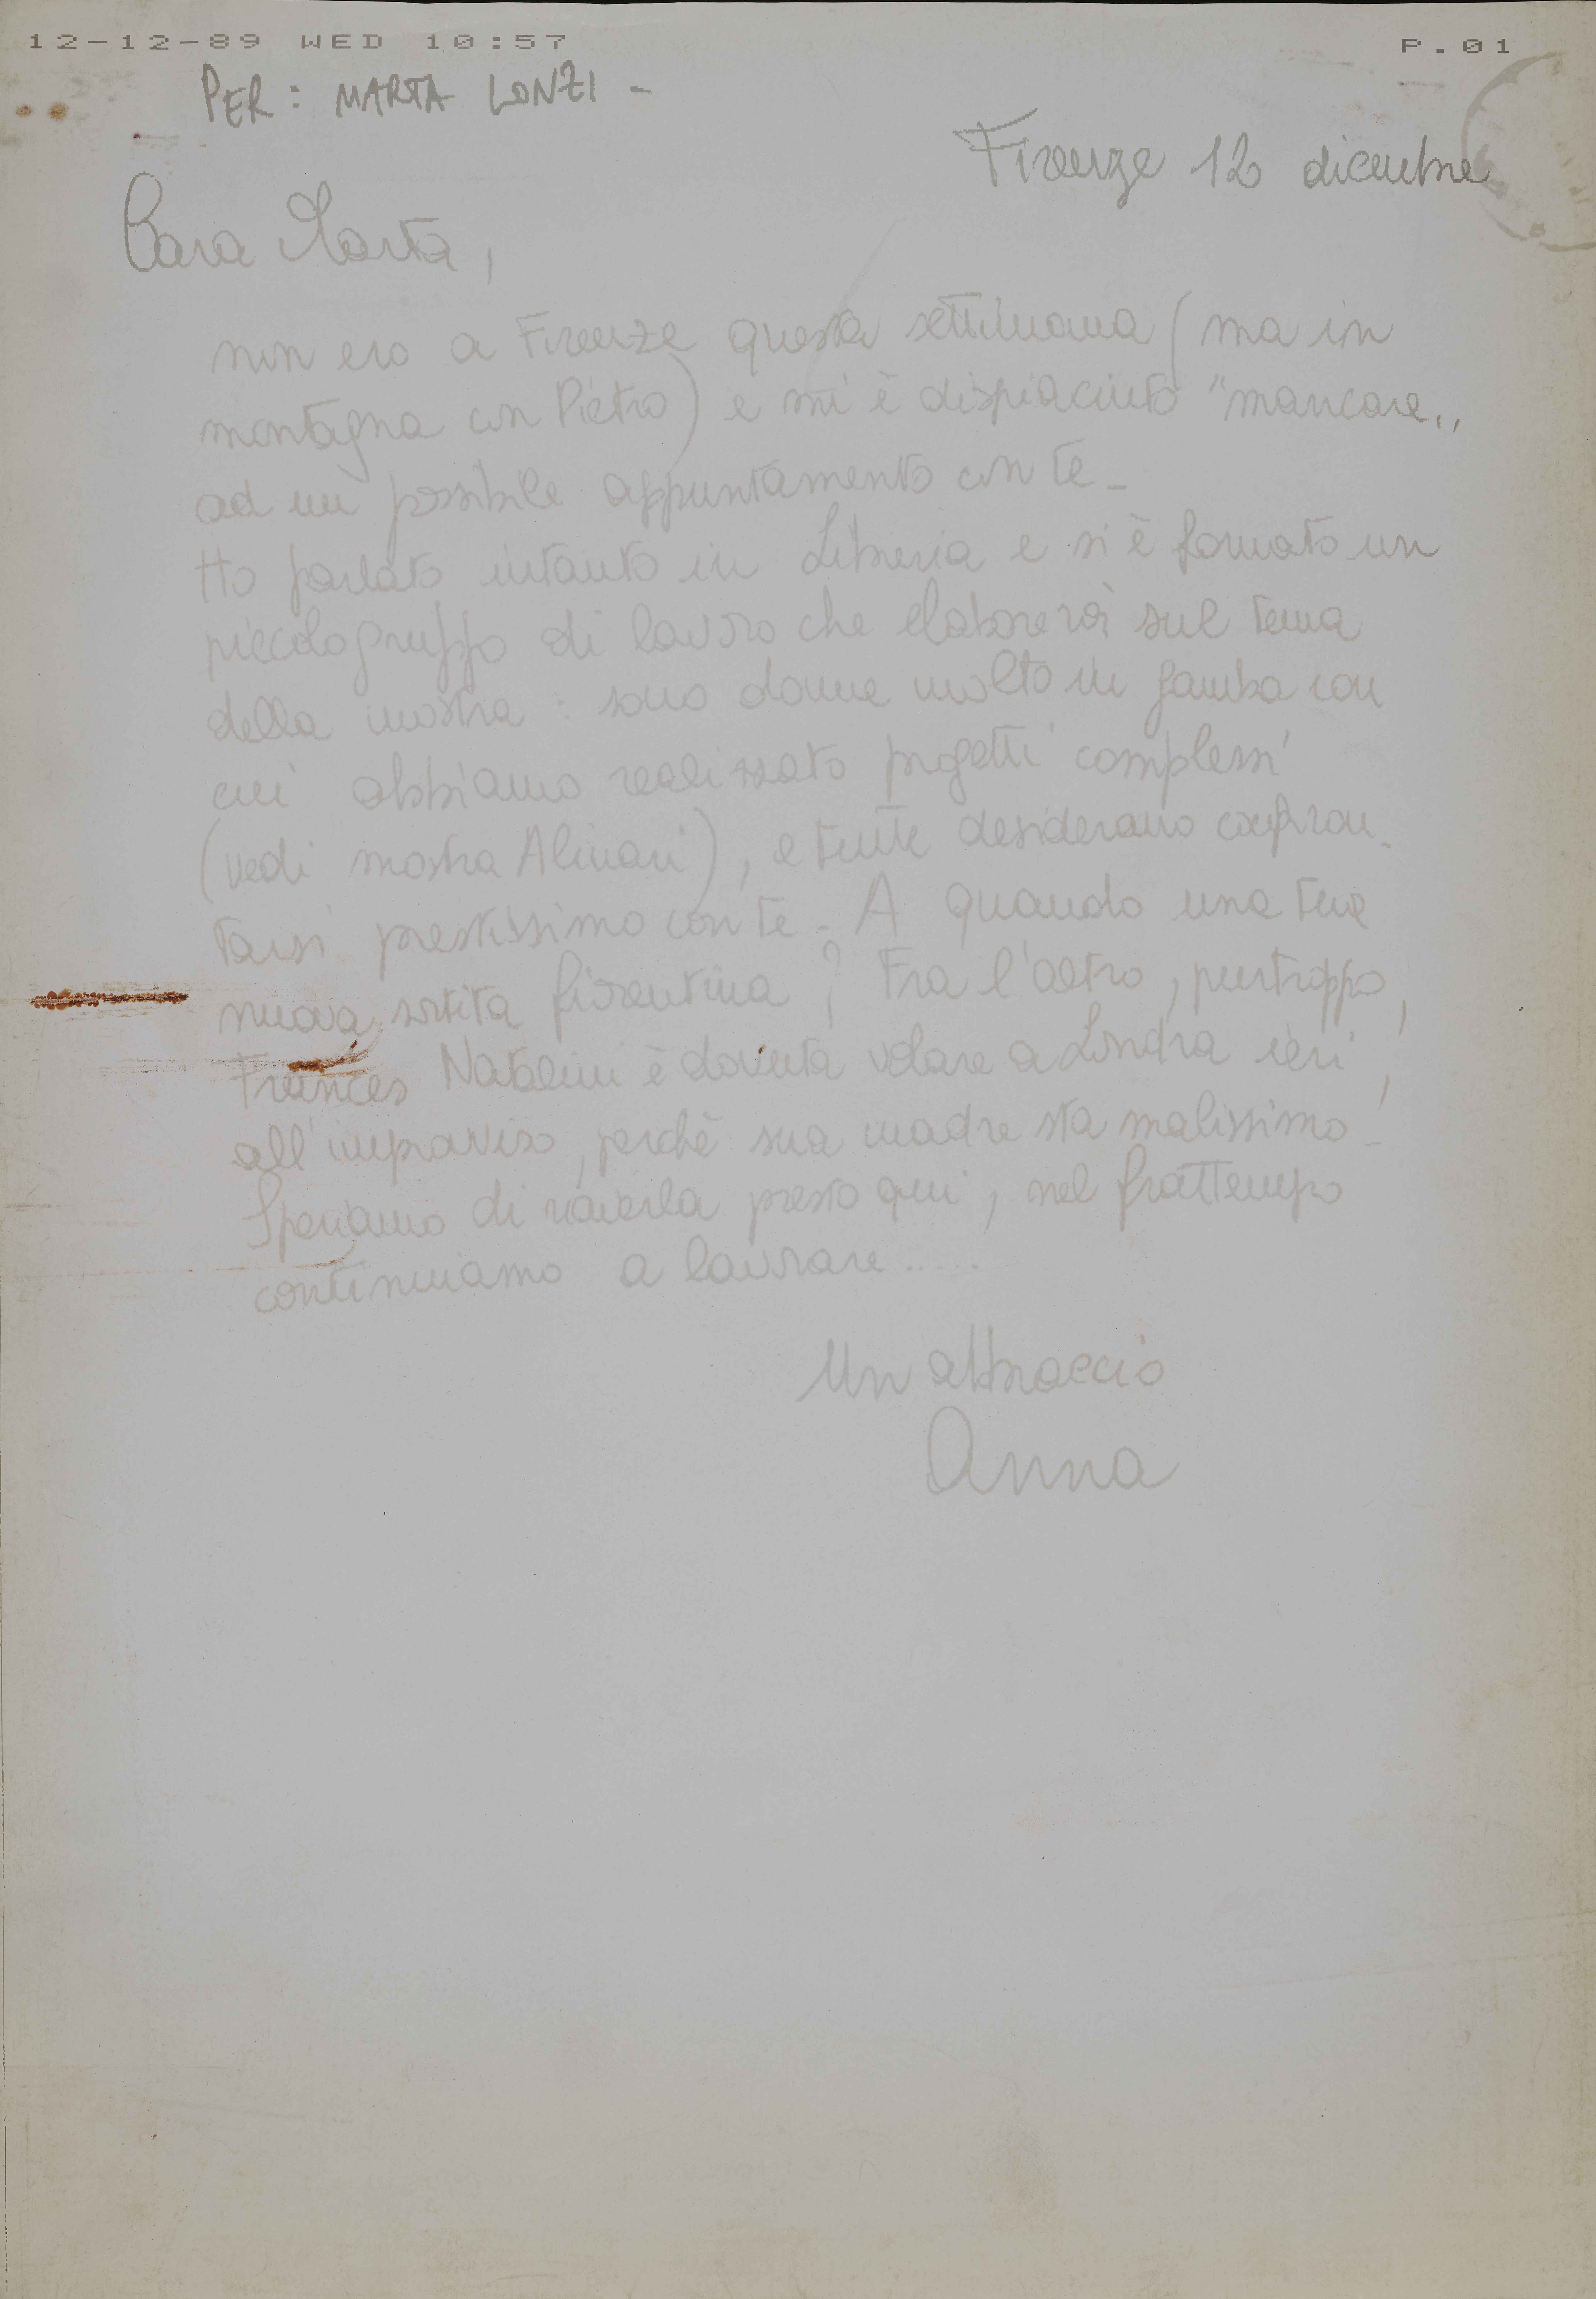 12-12-89 WED 10:57 P.01
PER: MARTA LONZI -
Firenze 12 dicembre
Cara Marta,
non ero a Firenze questa settimana (ma in
montagna con Pietro) e mi è dispiaciuto "mancare"
ad un possibile appuntamento con te -
Ho parlato intanto in Libreria e si è formato un
piccolo gruppo di lavoro che elaborerà sul tema
della mostra : sono donne molto in gamba con
cui abbiamo realizzato progetti complessi
(vedi mostra Alinari), e tutte desiderano confron-
tarsi prestissimo con te - A quando una tua
nuova sortita fiorentina ? Fra l'altro, purtroppo,
Frances Natalini è dovuta volare a Londra ieri,
all'improvviso, perchè sua madre sta malissimo -
Speriamo di riaverla presto qui, nel frattempo
continuiamo a lavorare .....
Un abbraccio
Anna